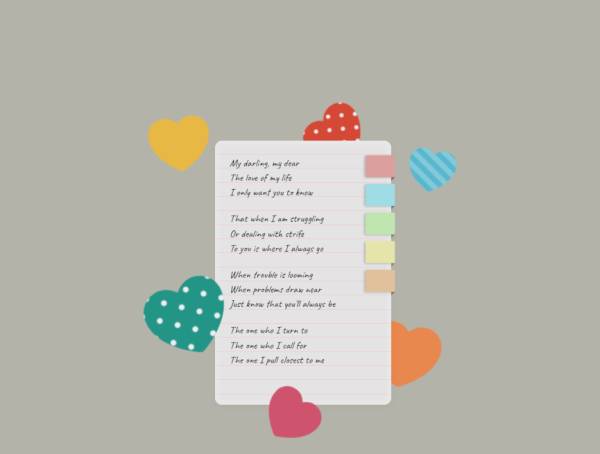 My darling, my dear
The love of my life
I only want you to know
That when I am struggling
Or dealing with strife
To you is where I always go
When trouble is looming
When problems draw near
Just know that you'll always be
The one who I turn to
The one who I call for
The one I pull closest to me